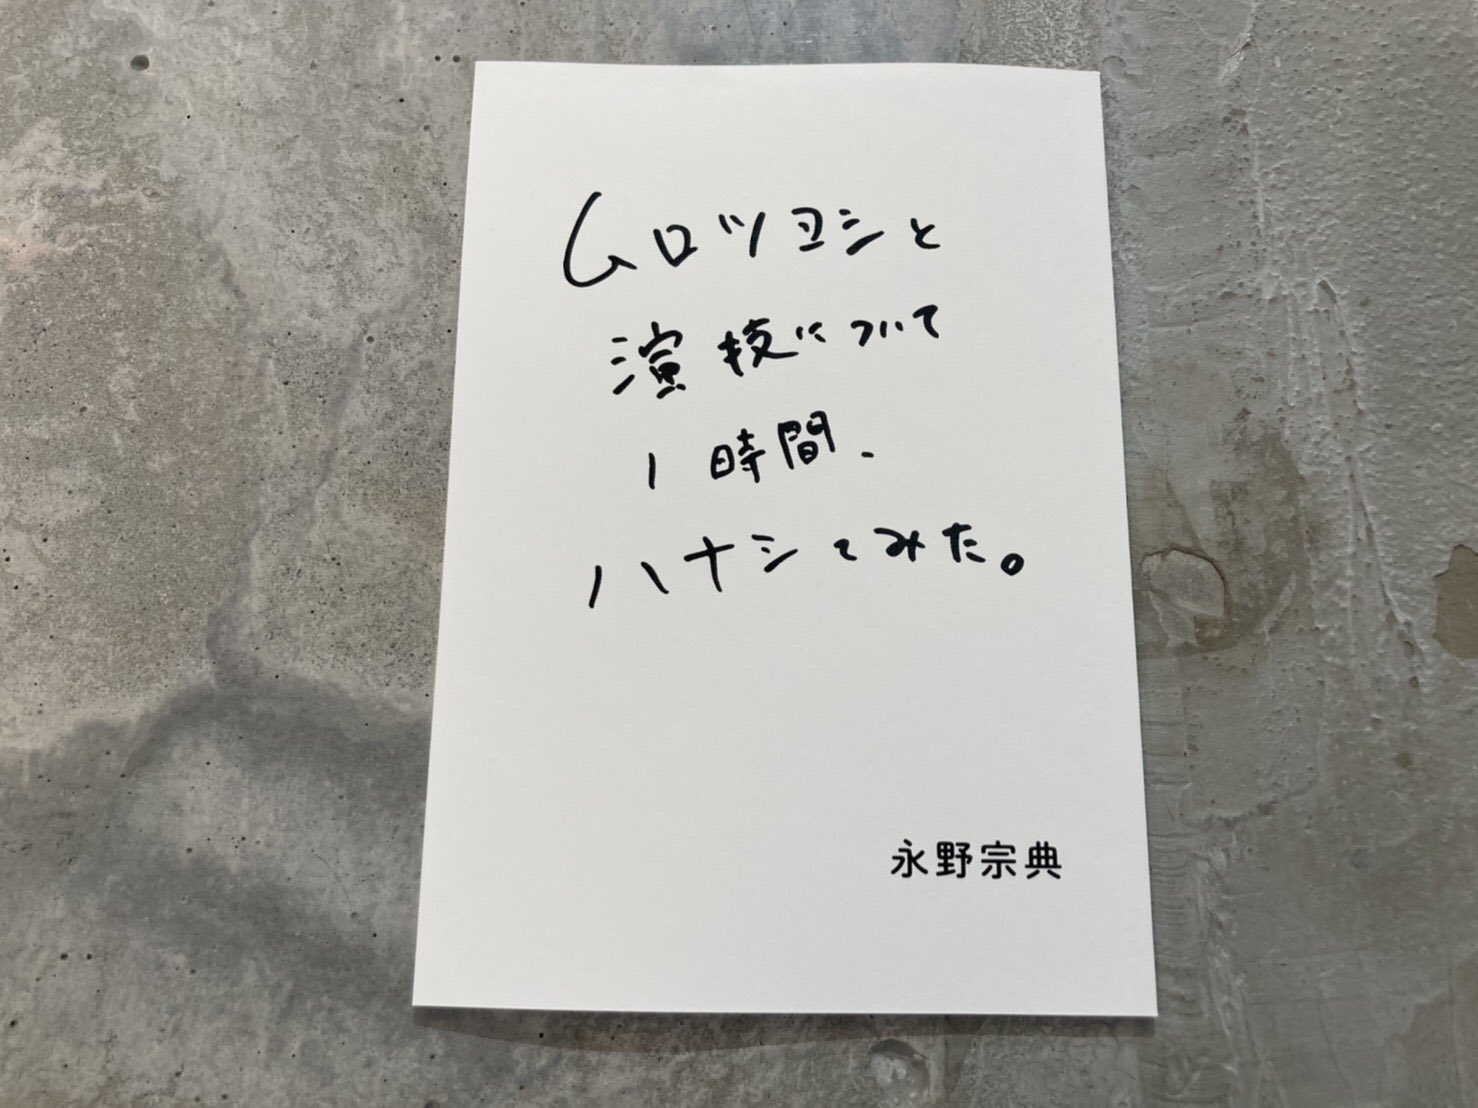 ムロツヨシと
演技について
1時間、
ハナシてみた。
永野宗典